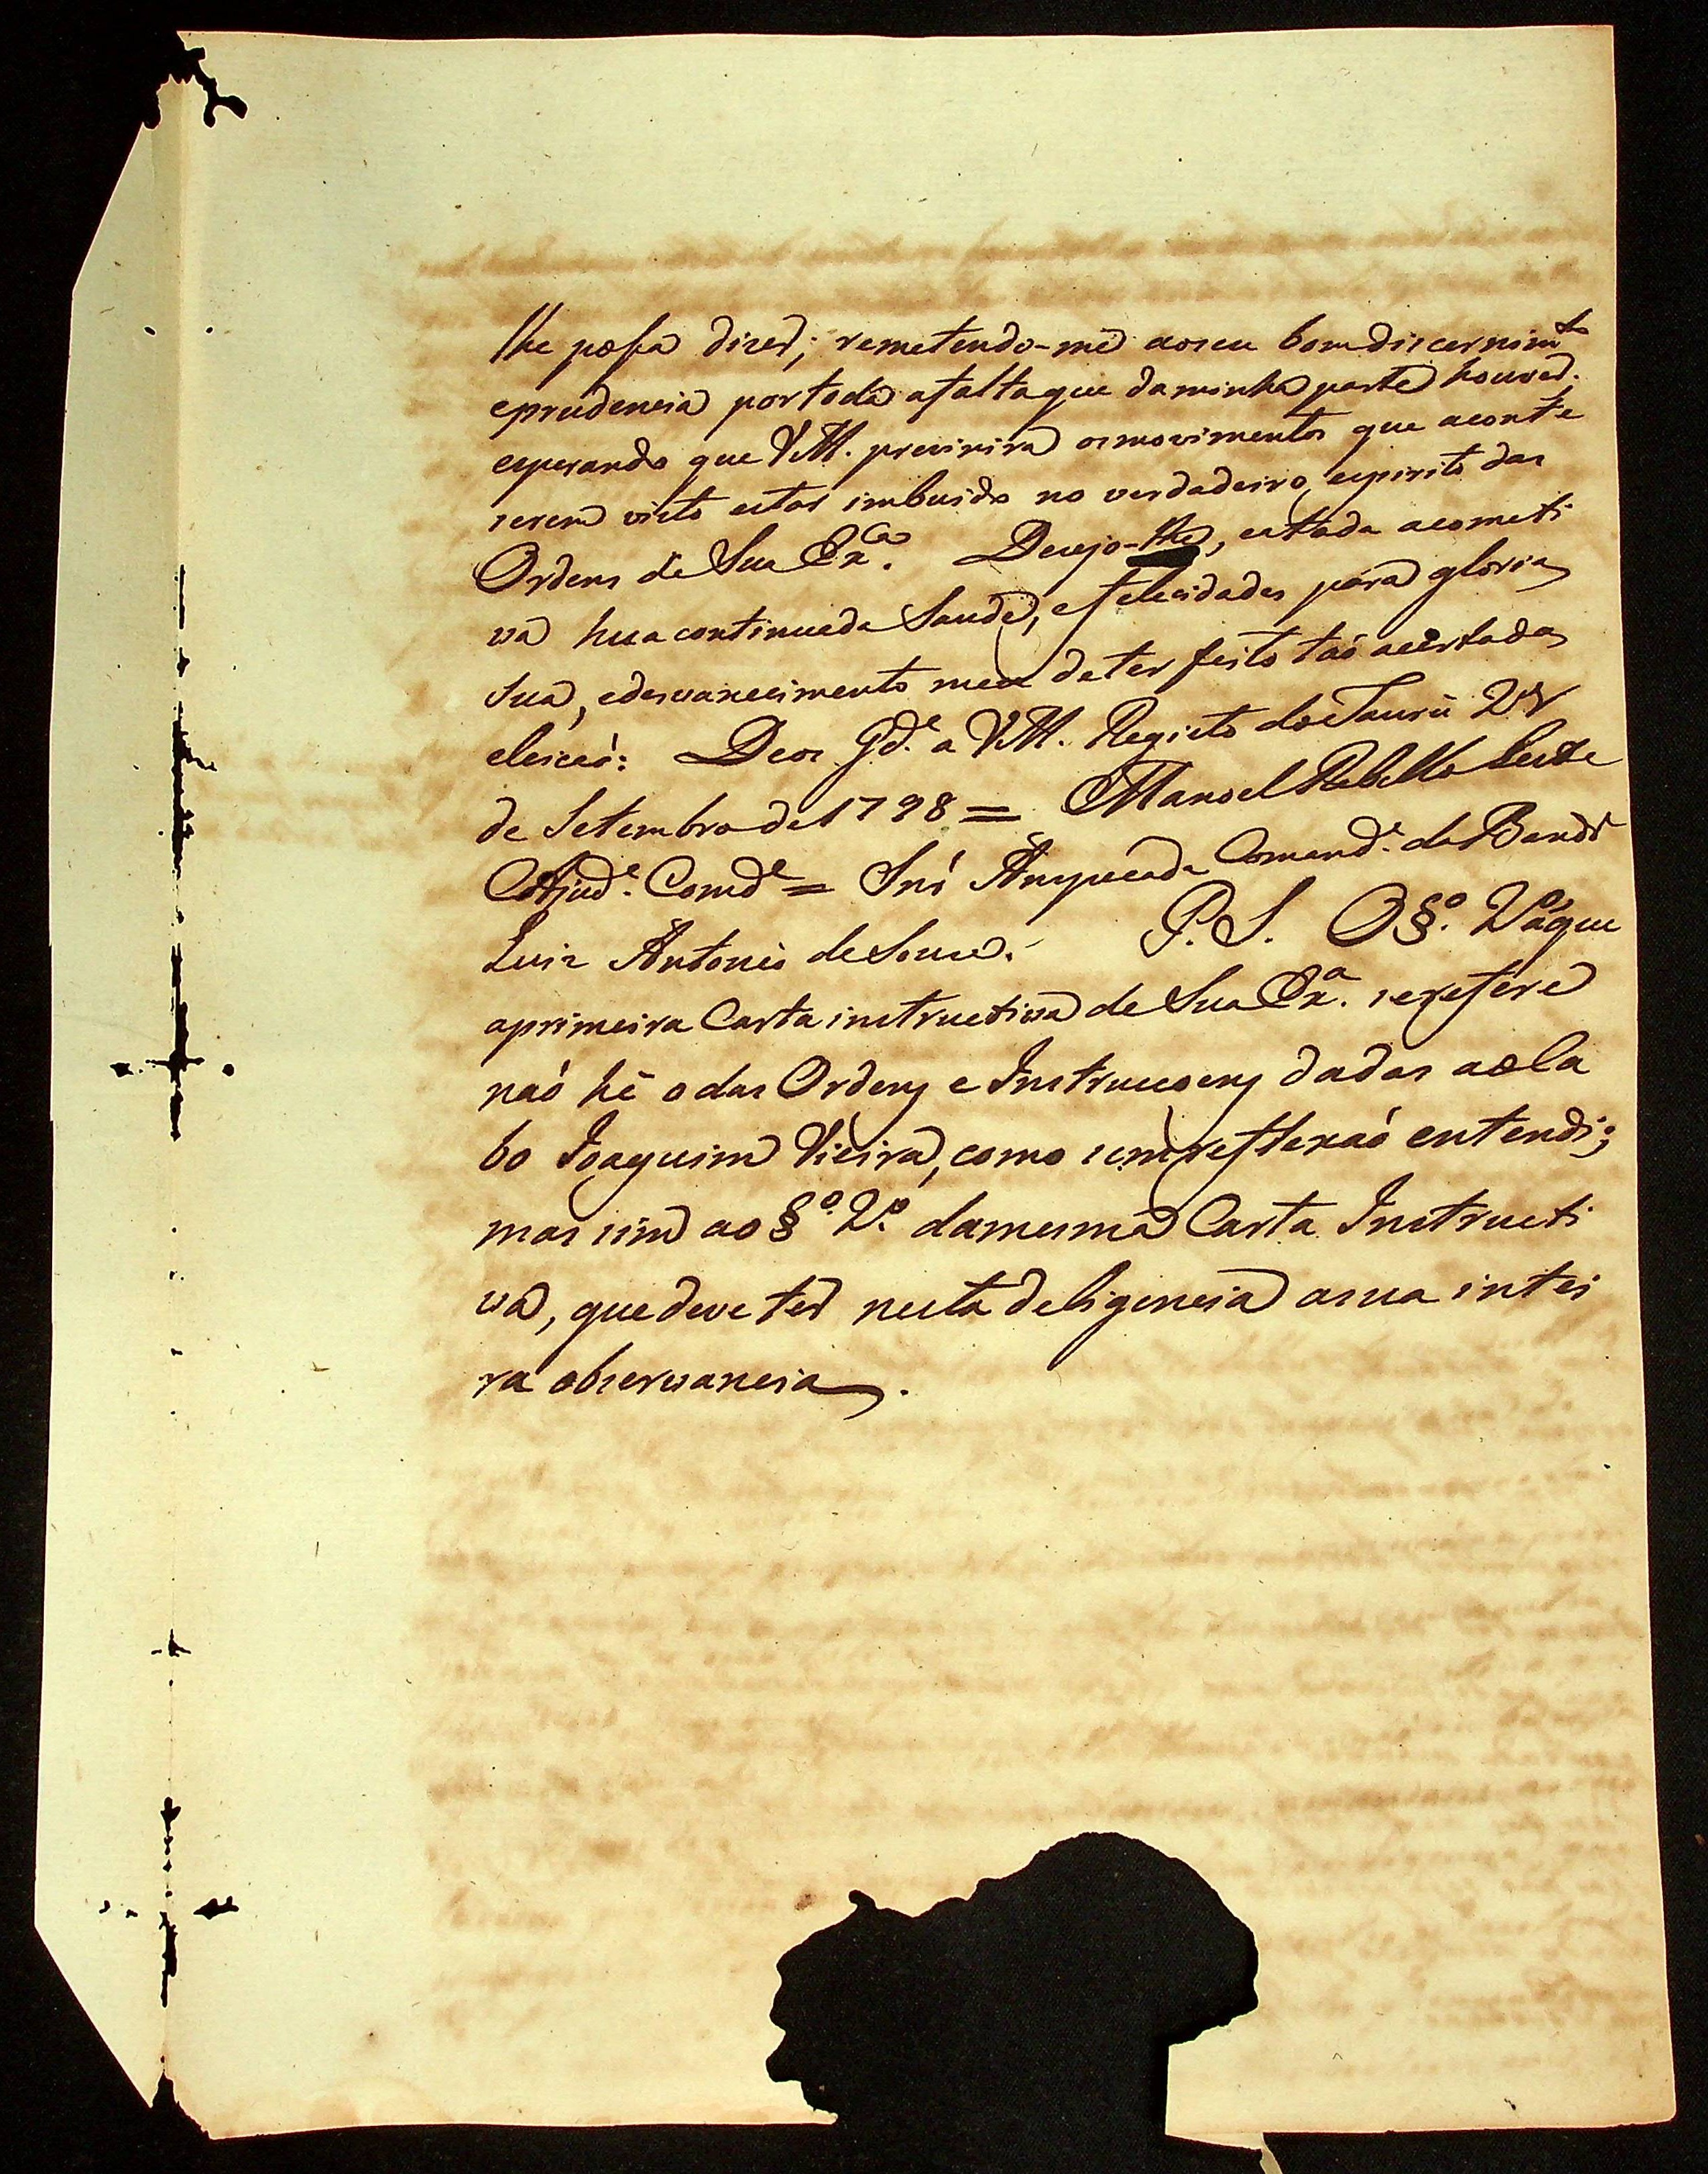 lhe posſa dizer; remetendo-me aoseu bomdiscernimto
eprudencia portoda afaltaque daminha parte houver.
esperando que VM. previnirá osmovimentos que aconte
serem visto estar imbuido no verdadeiro espirito das
Ordens de Sua Exca. Desejo-lhe, estada acometi
va hua continuada Saude, efelicidades para gloria
sua, edesvanecimento meu deter feito taó acertada
eleiçaó: Deos Gde. a VM. Registo do Jaurú
de Setembro de 1798 = Manoel Rebello Leite
Ajude. Comde = Snr Anspeçada Comande. da Bandra
Luiz Antonio de Souza. P.S. O §o. 2o aque
aprimeira Carta instructiva de Sua Exa. serefere
naó hé o das Ordens e Instrucoens dadas aoCa
bo Joaquim Vieira, como semreflexaó entendi;
mas sim ao §o. 2o. damesma Carta Instructi
va, quedeve ter nesta deligencia asua intei
ra observancia.